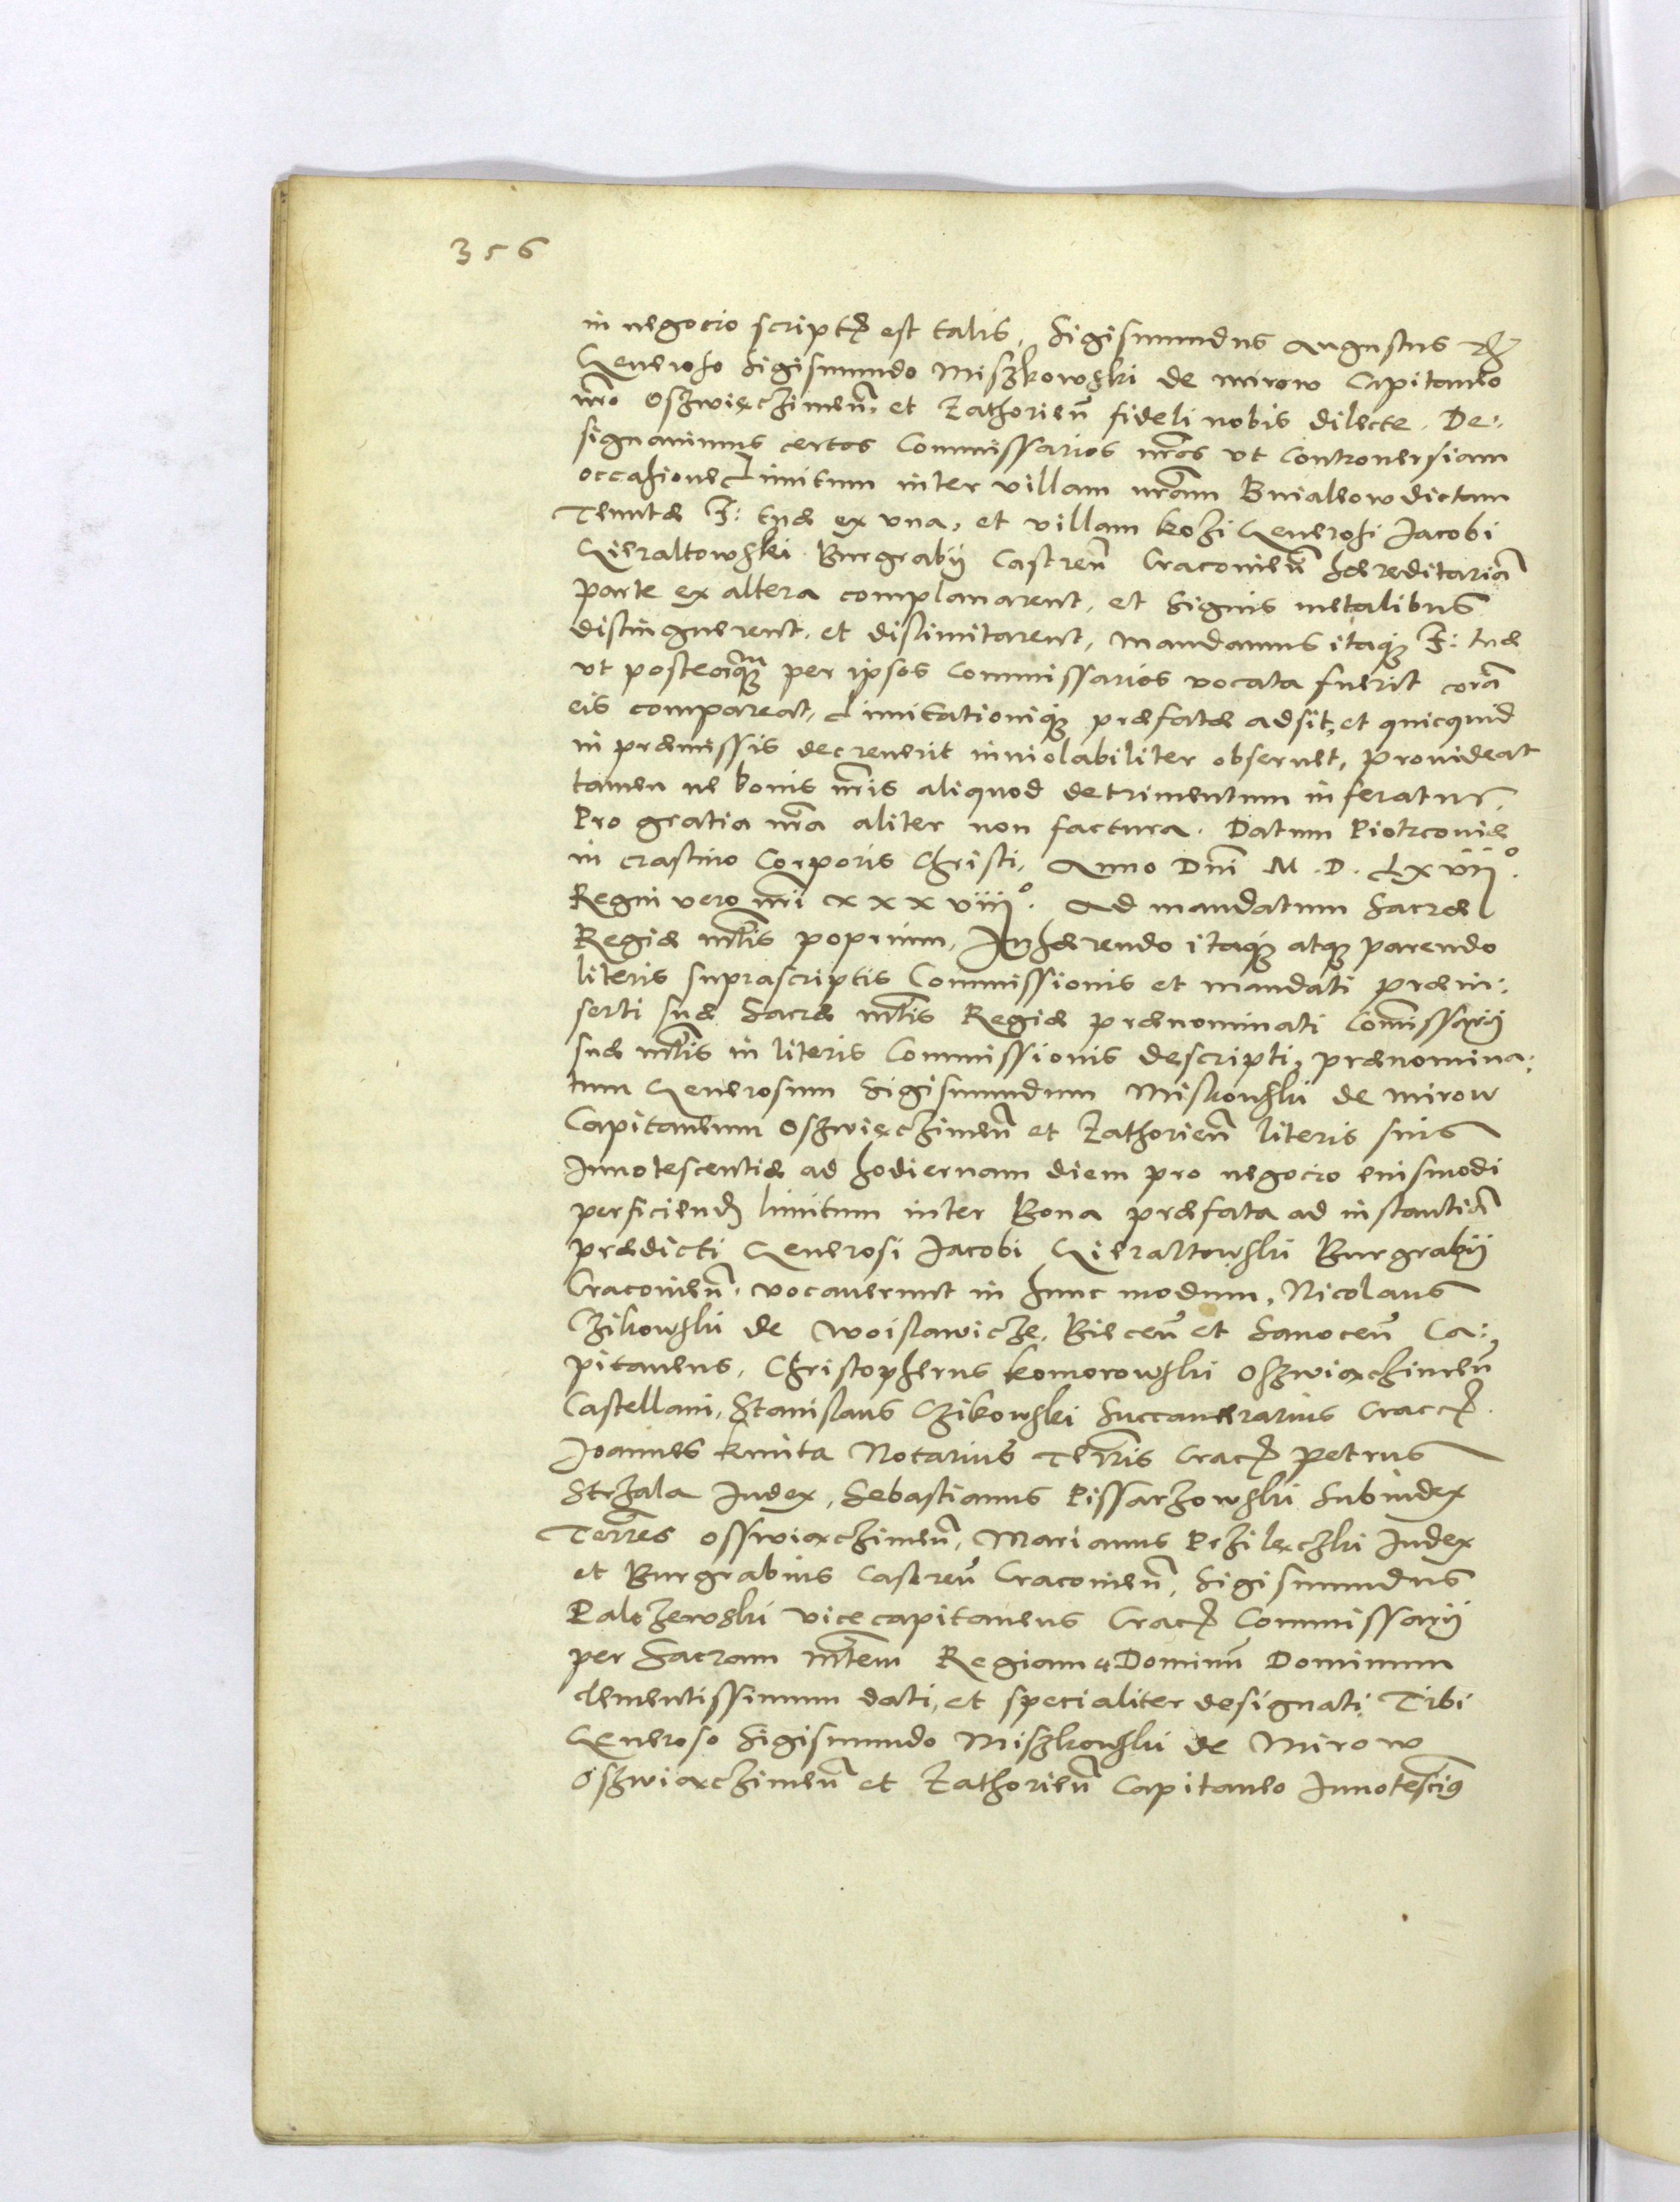 356
in negocio scriptę est talis, Sigismundus Augustus Rx
Generoso Sigismundo Miszkowski de mirow Capitaneo
nro Oszwięczimeñ. et Zathorieñ fideli nobis dilecte. De:
signauimus certos Commissarios nros vt controuersiam
occasione Limitum inter villam nram Buialow dictam
Tenutæ F: tuæ ex vna, et villam kozi Generosi Jacobi
Gieraltowski Burgrabij Castreñ Cracouieñ hæreditariã
parte ex altera complanarent, et signis metalibus
distinguerent, et dislimitarent, mandamus itaq; F: tuæ
vt posteaq;m per ipsos Commissarios vocata fuerit corã
eis compareat, Limitationiq; præfatæ adsit, et quicquid
in præmissis decreuerit inuiolabiliter obseruet, prouideat
tamen ne bonis nris aliquod detrimentum inferatur.
Pro gratia nra aliter non factura. Datum Piotrcouiæ
in crastino Corporis Christi, Anno Dni M. D. Lxvii°.
Regni vero nri xxxviii°. Ad mandatum Sacræ
Regiæ mtis poprium, Inhærendo itaq; atq; parendo
literis suprascriptis Commissionis et mandati præin:
serti suæ Sacræ mtis Regiæ prænominati Comissarij
suæ mtis in literis Commissionis descripti, prænomina:
tum Generosum Sigismundum Miskowski de mirow
Capitaneum Oszwięczimeñ et Zathorieñ literis suis
Innotescentiæ ad hodiernam diem pro negocio eiusmodi
perficiend limitum inter Bona præfata ad instantiã
prædicti Generosi Jacobi Gieraltowski Burgrabij
Cracouieñ. vocauerunt in hunc modum, Nicolaus
Czikowski de Woislawicze, Bieceñ et Sanoceñ Ca:
pitaneus, Christopherus komorowski Oszwiaczimeñ
Castellani, Stanislaus Czikowski Succamerarius Cracę.
Joannes kmita Notarius Terris Cracę Petrus
Strzala Iudex, Sebastianus Pissarzowski Subiudex
Terres Osswiaczimeñ, Marianus Przilęczki Iudex
et Burgrabius Castreñ Cracouieñ, Sigismundus
Palczewski vicecapitaneus Cracę Commissarij
per Sacram mtem Regiam Dominũ Dominum
clementissimum dati, et specialiter designati Tibi
Generoso Sigismundo Miszkowski de Mirow
Oszwiaczimeñ et Zathorieñ Capitaneo Innotescimꝰ